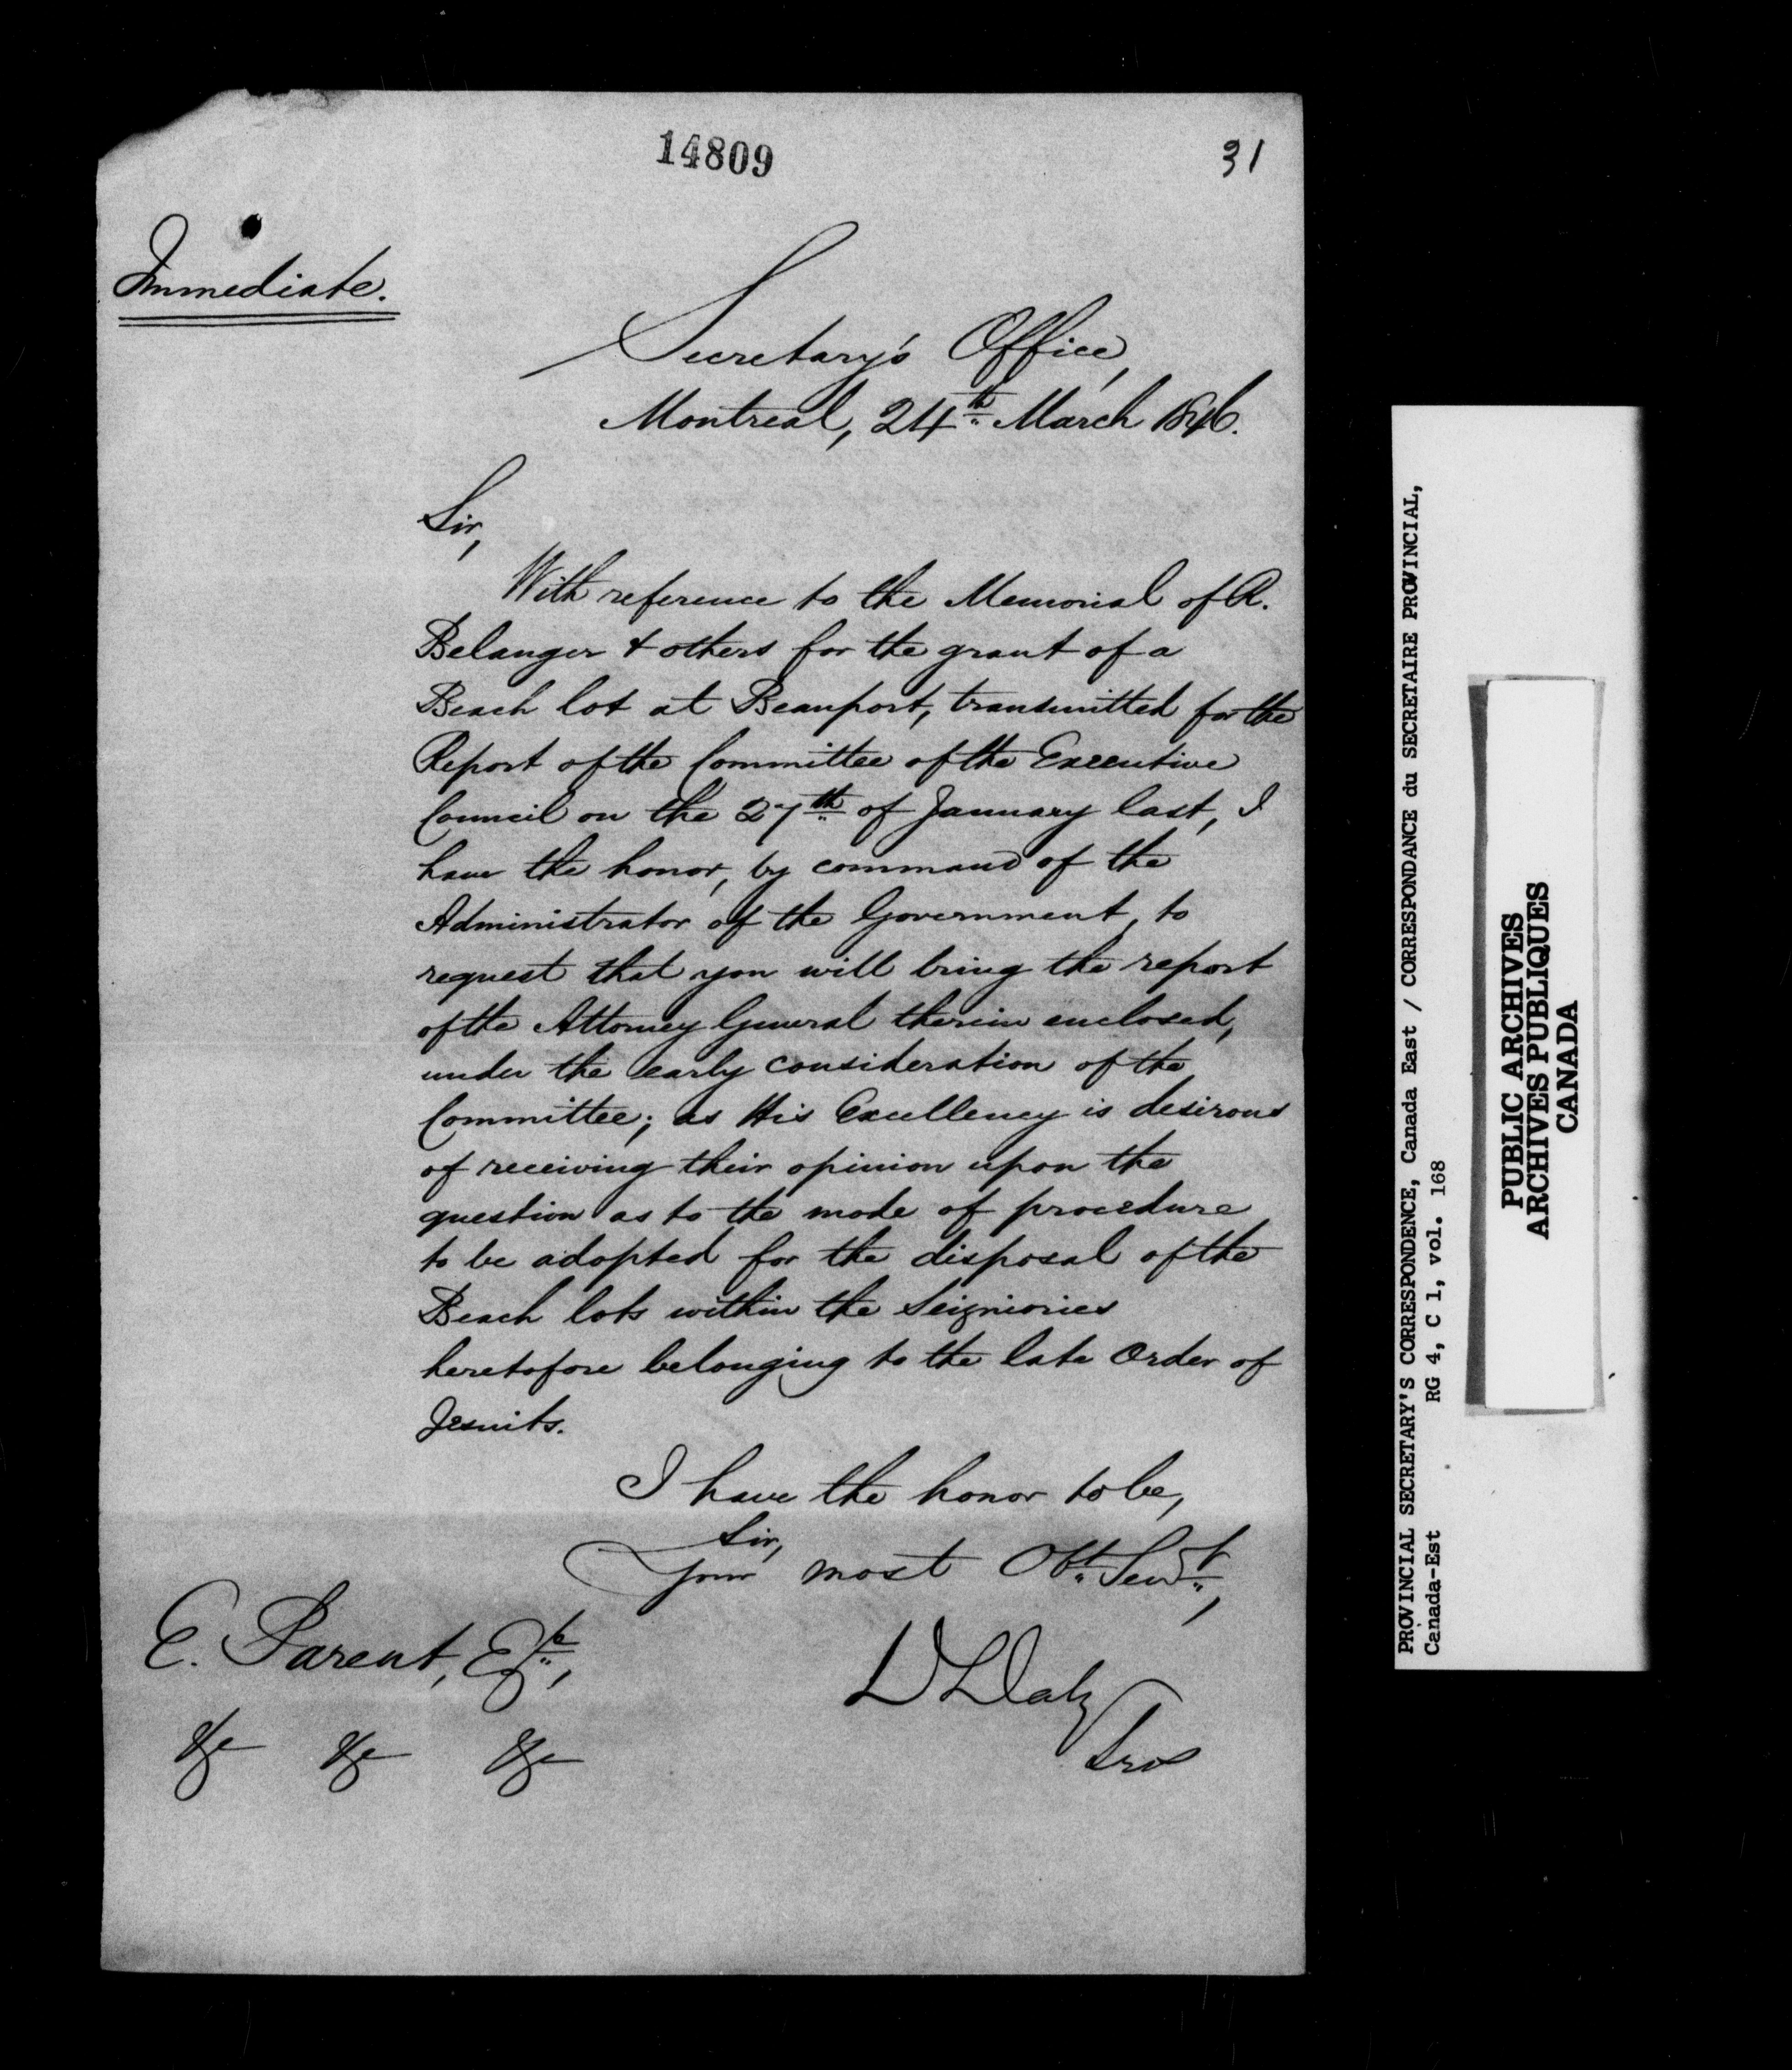 14809
31
Immediate.
Secretary's Office,
Montreal, 24th March 1846.
Sir,
With reference to the Memorial of R.
Belanger & others for the grant of a
Beach lot at Beauport, transmitted for the
Report of the Committee of the Executive
Council on the 27th of January last, I
have the honor, by command of the
Administrator of the Government, to
request that you will bring the report
of the Attorney General therein enclosed,
under the early consideration of the
Committee; as His Excellency is desirous
of receiving their opinion upon the
question as to the mode of procedure
to be adopted for the disposal of the
Beach lots within the Seigniories
heretofore belonging to the late Order of
Jesuits.
I have the honor to be,
Sir,
Your most Obt. Servt.,
E. Parent, Esqe.,
&c &c &c
D Daly
PROVINCIAL SECRETARY'S CORRESPONDENCE, Canada East / CORRESPONDANCE du SECRETAIRE PROVINCIAL,
Canada-Est RG 4, C 1, vol. 168
PUBLIC ARCHIVES
ARCHIVES PUBLIQUES
CANADA